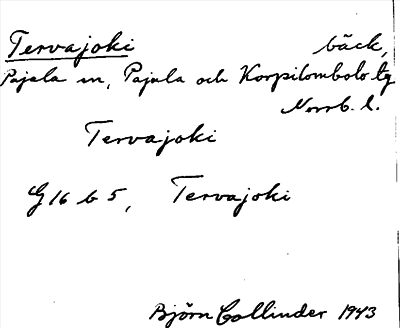 Tervajoki bäck,
Pajala sn, Pajala och Korpilombolo tg
Norrb. l.
Tervajoki
G 16 b 5, Tervajoki
Björn Collinder 1943